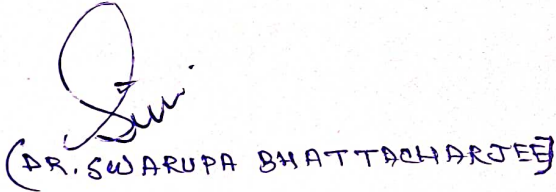 (DR. SWARUPA BHATTACHARJEE)